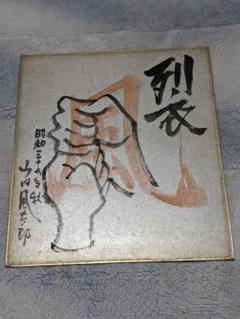 裂
衣
風
昭和三十九年秋
山田風太郎